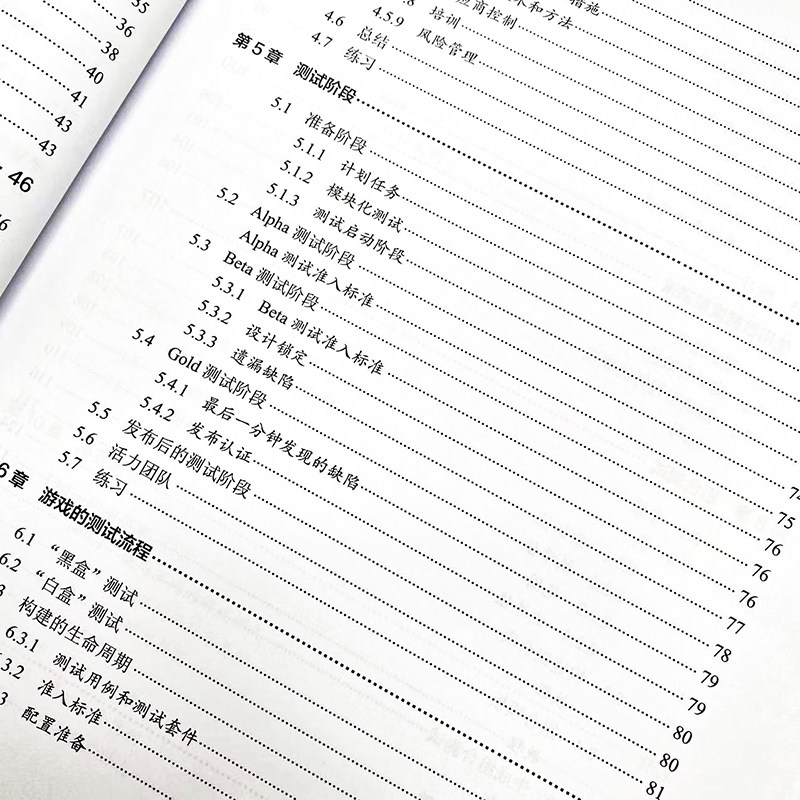 35
36
38
40
41
43
43
46
4.5.9 风险管理
培训
4.6 总结
4.7 练习
第5章 测试阶段
5.1 准备阶段
5.1.1 计划任务
5.1.2 模块化测试
5.1.3 测试启动阶段
5.2 Alpha 测试阶段
Alpha 测试准入标准 75
5.3 Beta 测试阶段 76
5.3.1 Beta 测试准入标准 76
5.3.2 设计锁定 76
5.3.3 遗漏缺陷 77
5.4 Gold 测试阶段 78
5.4.1 最后一分钟发现的缺陷 79
5.4.2 发布认证 79
5.5 发布后的测试阶段 80
5.6 活力团队 80
5.7 练习 81
6章 游戏的测试流程
6.1 “黑盒”测试
6.2 “白盒”测试
构建的生命周期
6.3.1 测试用例和测试套件
准入标准
配置准备